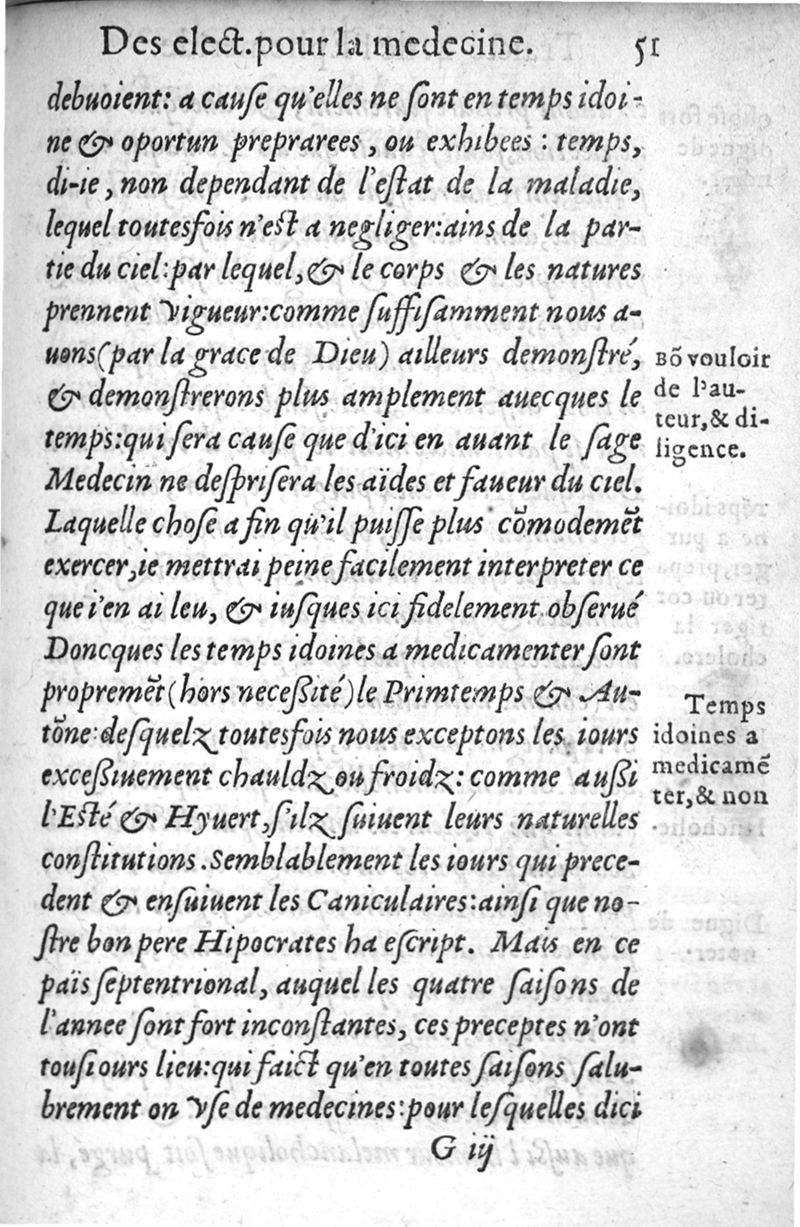 Des elect.pour la medecine. 51
debuoient: a cauſe qu'elles ne ſont en temps idoi-
ne & oportun preprarees, ou exhibees : temps,
di-ie, non dependant de l'eſtat de la maladie,
lequel toutesfois n'eſt a negliger:ains de la par-
tie du ciel:par lequel, & le corps & les natures
prennent vigueur:comme ſuffiſamment nous a-
uons (par la grace de Dieu) ailleurs demonſtré,
& demonſtrerons plus amplement auecques le
temps:qui ſera cauſe que d'ici en auant le ſage
Medecin ne deſpriſera les aïdes et faueur du ciel.
Laquelle choſe a fin qu'il puiſſe plus cõmodemẽt
exercer,ie mettrai peine facilement interpreter ce
que i'en ai leu, & iuſques ici fidelement obſerué
Doncques les temps idoines a medicamenter ſont
propremẽt (hors neceßité) le Primtemps & Au-
tõne:deſquelz toutesfois nous exceptons les iours
exceßiuement chauldz ou froidz: comme außi
l'Eſté & Hyuert, ſ'ilz ſuiuent leurs naturelles
conſtitutions. Semblablement les iours qui prece-
dent & enſuiuent les Caniculaires:ainſi que no-
ſtre bon pere Hipocrates ha eſcript. Mais en ce
païs ſeptentrional, auquel les quatre ſaiſons de
l'annee ſont fort inconſtantes, ces preceptes n'ont
touſiours lieu:qui faict qu'en toutes ſaiſons ſalu-
brement on vſe de medecines:pour leſquelles dici
G iij
Bõ vouloir
de l'au-
teur,& di-
ligence.
Temps
idoines a
medicamẽ
ter,& non